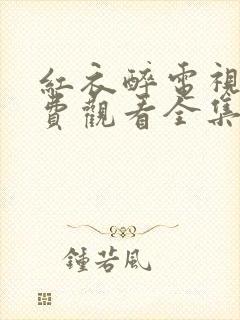 紅衣醉電視
費觀看全集
鍾若風